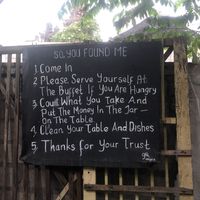 SO, YOU FOUND ME
1. Come In
2. Please Serve Yourself At
The Buffet If You Are Hungry
3. Count What You Take And
Put The Money In The Jar —
On The Table.
4. Clean Your Table And Dishes
5. Thanks for Your Trust